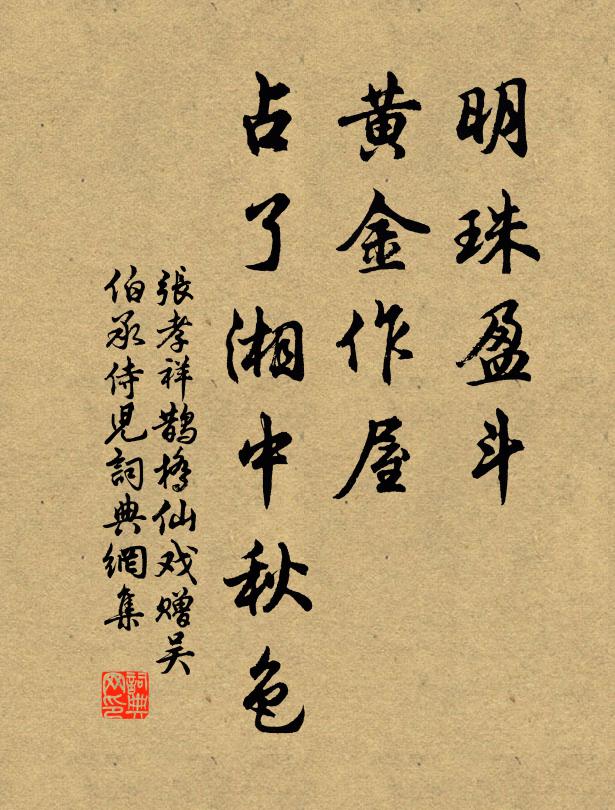 明珠盈斗
黄金作屋
占了湘中秋色
張孝祥鵲橋仙戏赠吴
伯承侍児詞典網集
詞典网印